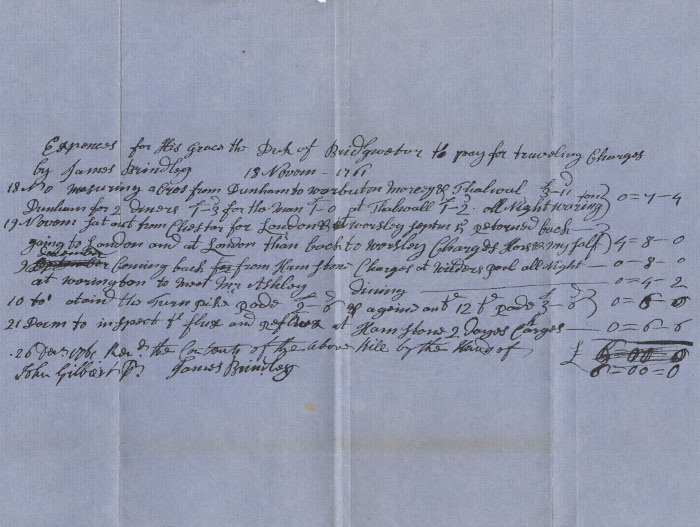 Expences for His grace the Duk of Bridgwator to pay for traveling Charges
by James Brindley 18 Novem - 1761
18 No mesuring a Cros from Dunham to warbuton Morcys & Thalwal 3-11
Dunham for 2 diners 1-3 for the man 1-0 at Thalwall 1-2 all Night waring ton 0=7-4
19 Novem Sat out from Chestar for London & at worsley Septn is Returned back
going to London and at London than back to worsley Charges Hors & my self 4=8-0
Coming back from Ham stone Charges at Wilders pool all Night 0-8-0
at warington to meet Mr Ashley dining 0=4-2
10 to ataind the turn pike pade 6-6 & againe ant 12 to pade 0=6-0
21 Decm to inspect te flux and reflux at Ham stone 2 Dayes Charges 0=6-6
26 Decr 1761 Recd. the Contents of the above Bill by the Hand of £
John Gilbert James Brindley 6=00=0